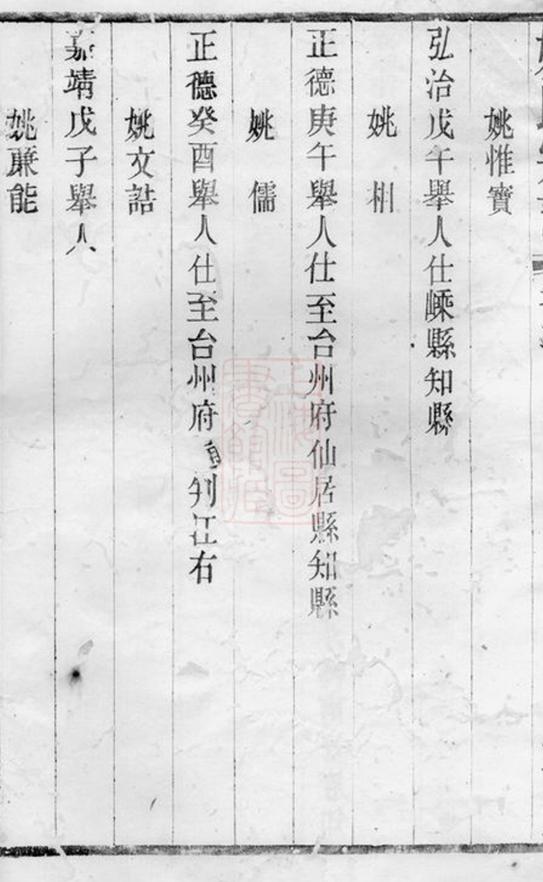 姚惟寳
弘治戊午舉人仕嵊縣知縣
姚
正德庚午舉人仕至台州府仙居縣知縣
姚儒
正德癸酉舉人仕至台州府判江右
姚文誥
嘉靖戊子舉人
姚兼能